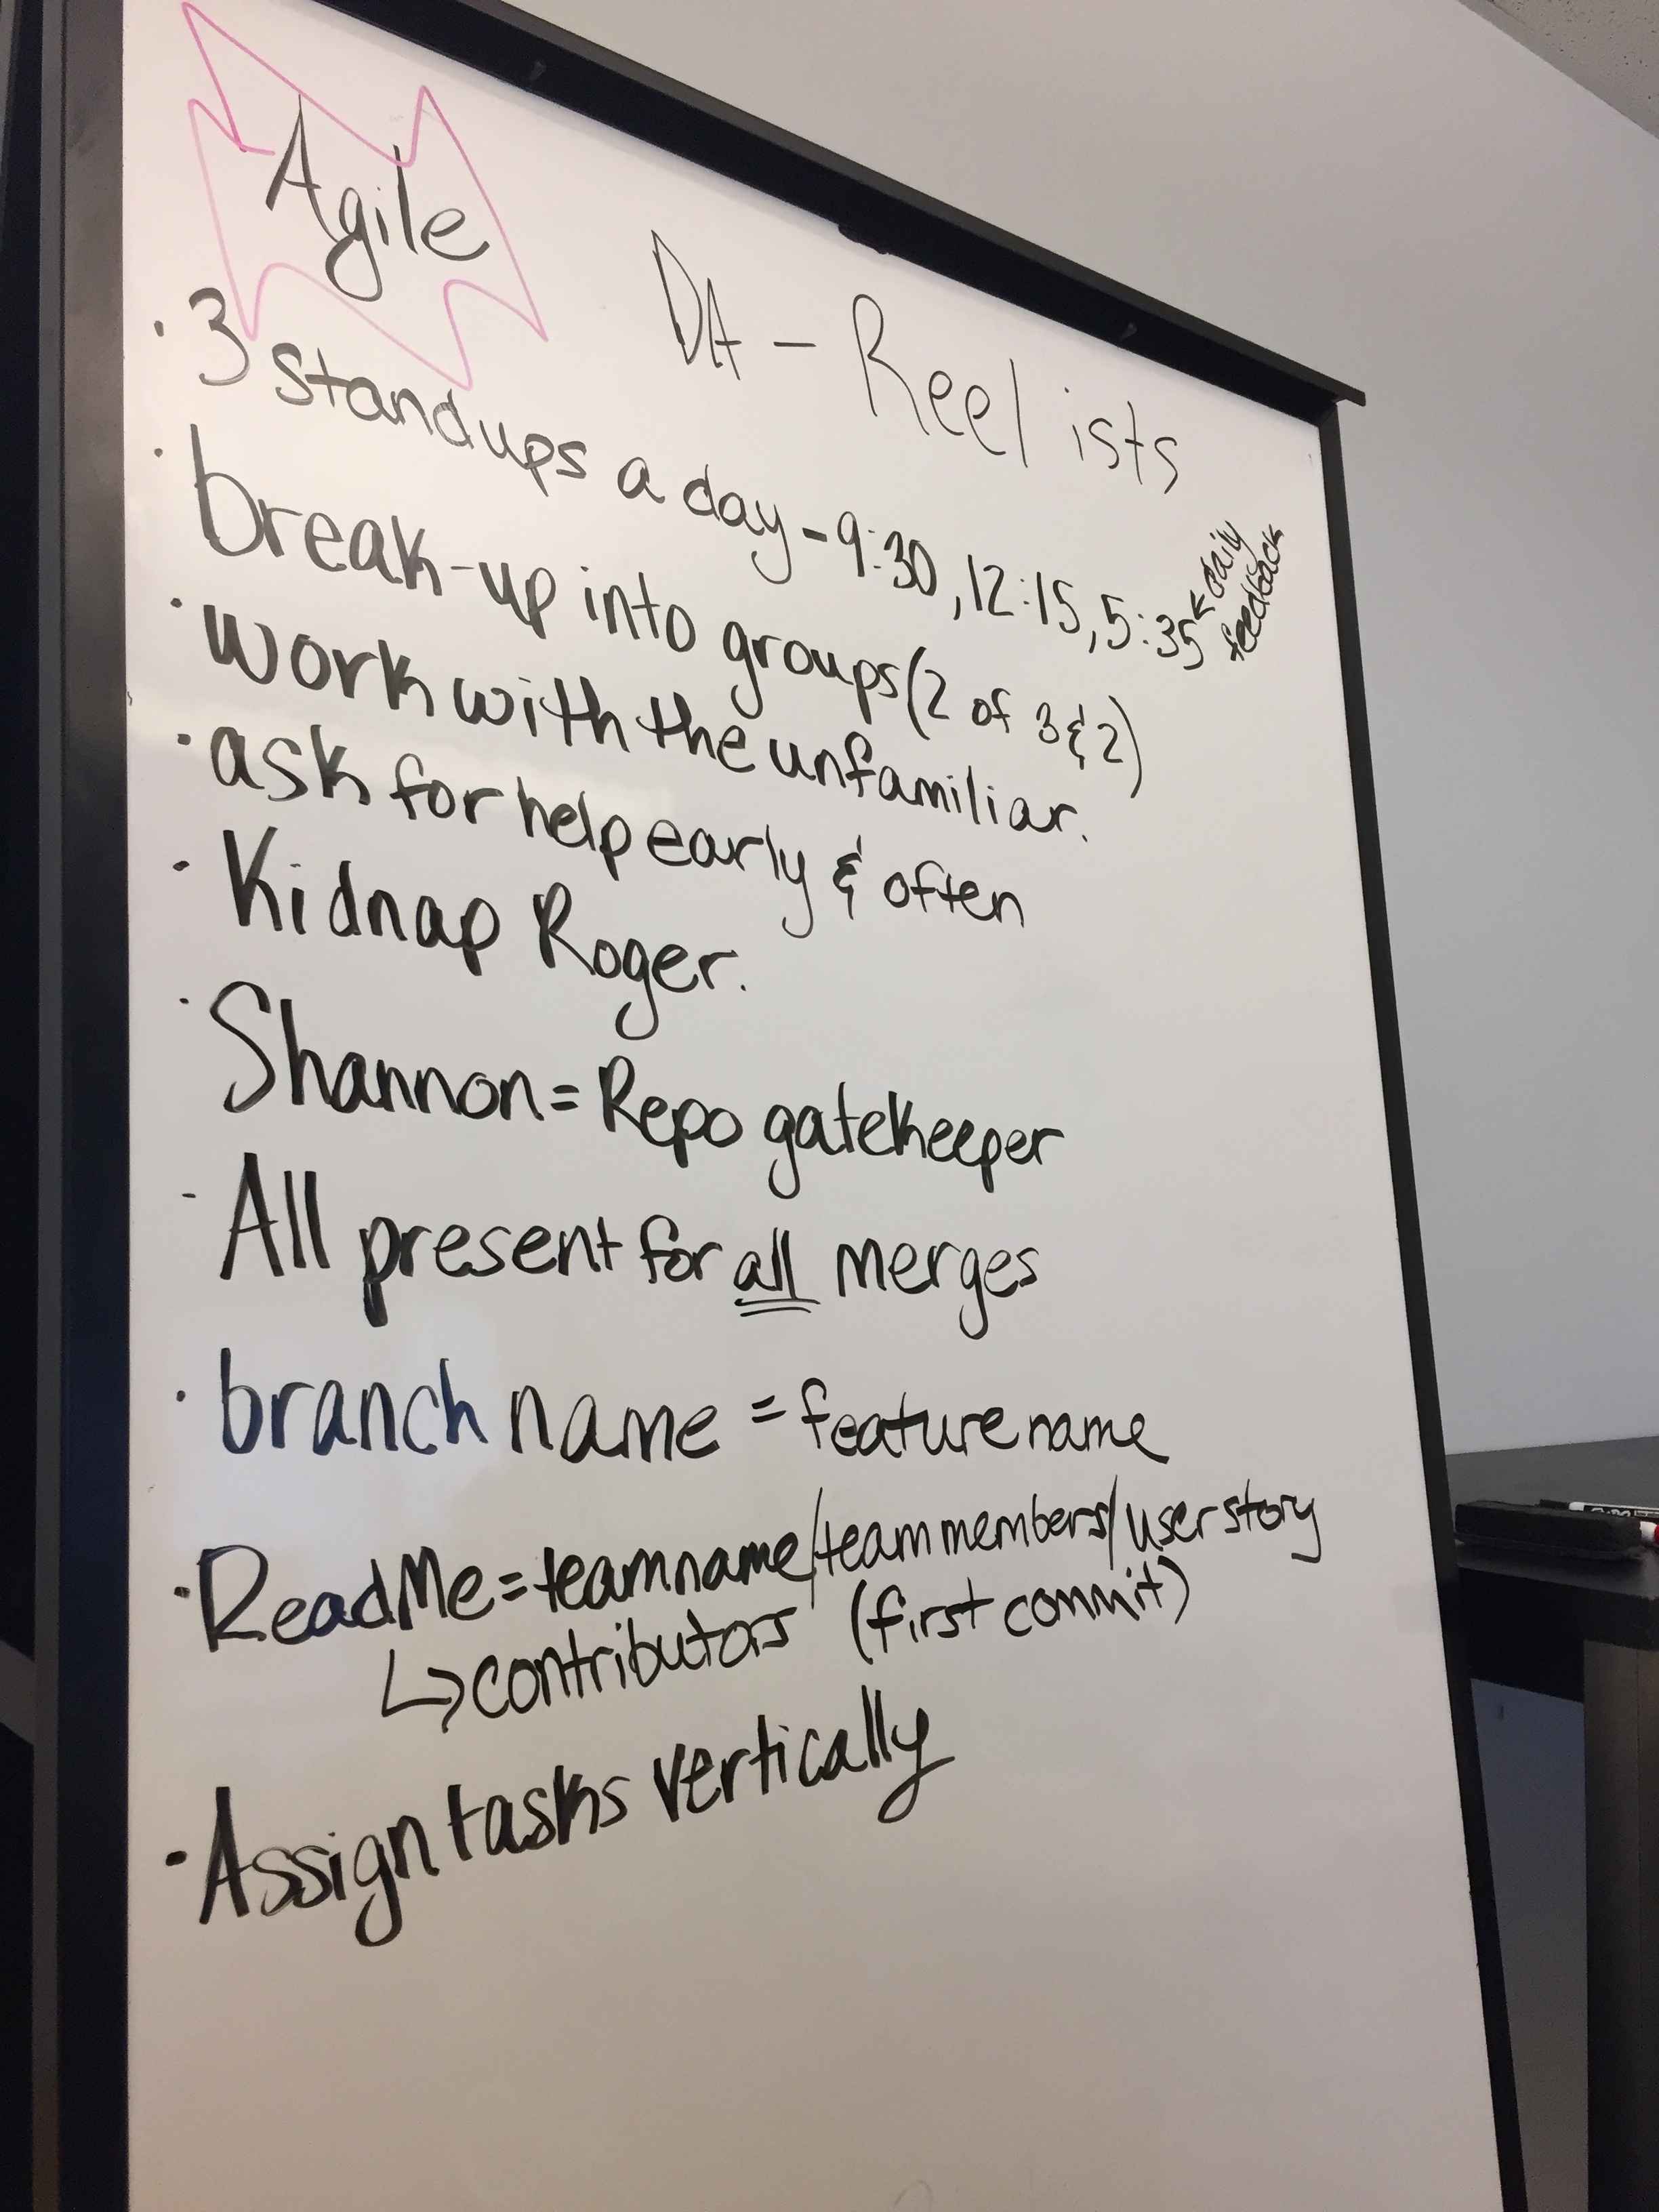 Agile
DA - Reelists
· 3 standups a day - 9:30, 12:15, 5:35 ← daily
feedback
· break-up into groups (2 of 3 & 2)
· work with the unfamiliar.
· ask for help early & often
· Kidnap Roger.
· Shannon = Repo gatekeeper
- All present for all merges
· branch name = feature name
· ReadMe = team name/team members/user story
↳ contributors (first commit)
· Assign tasks vertically